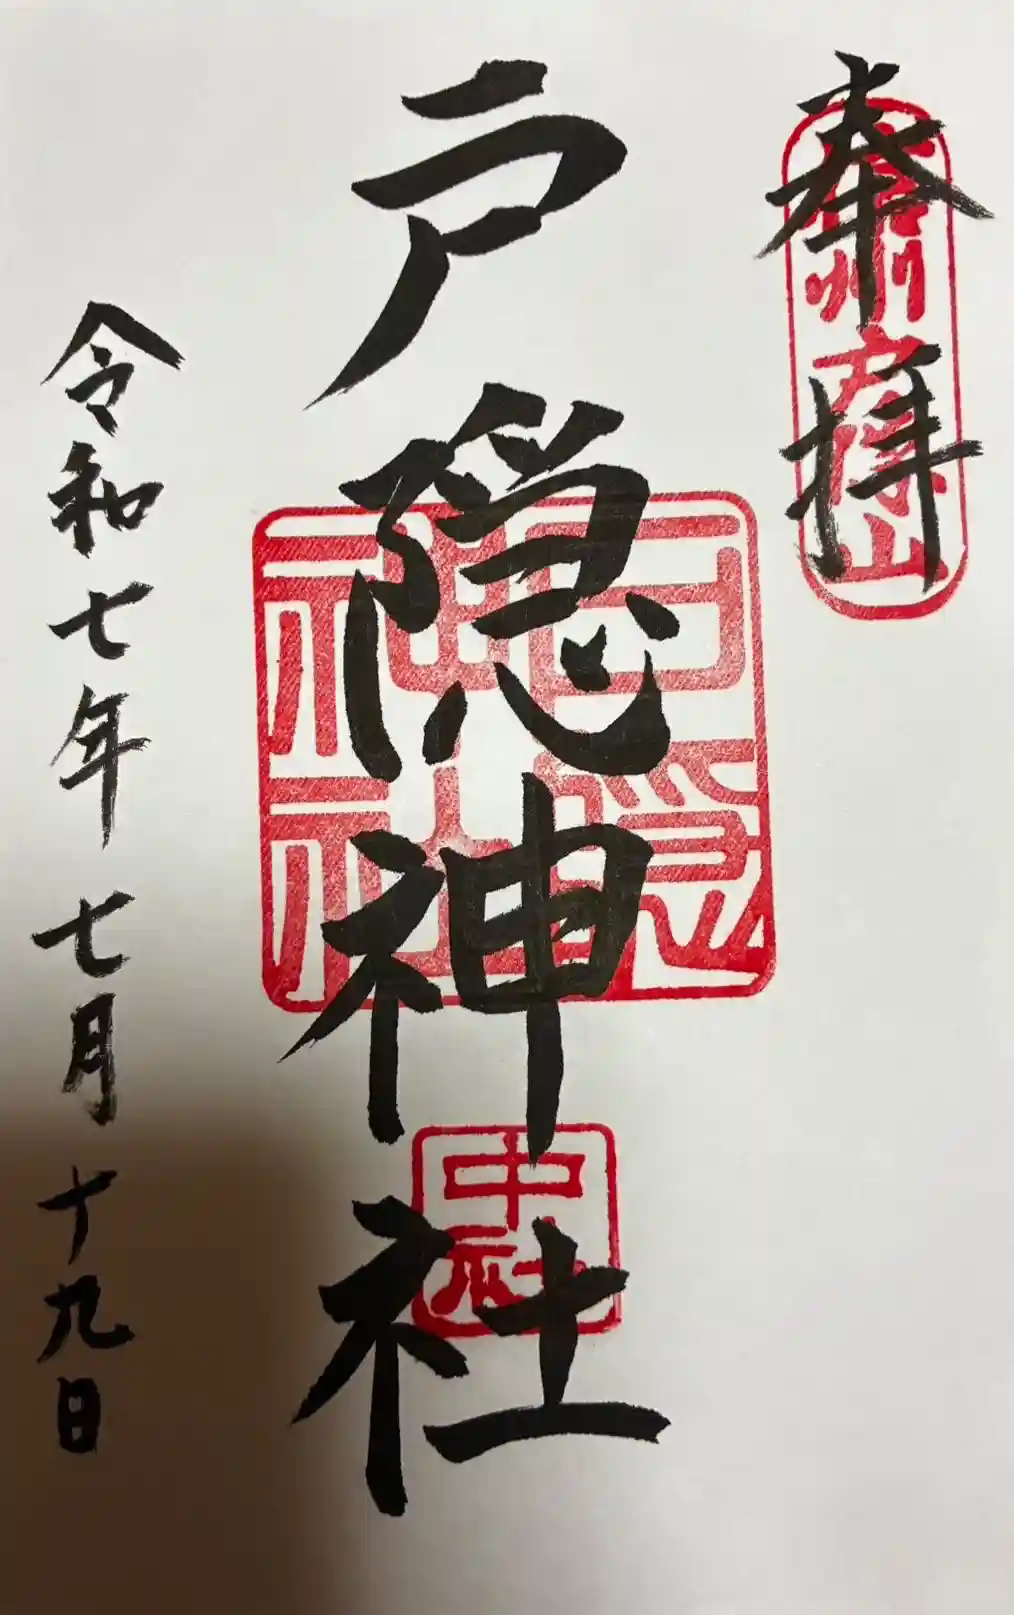 奉拝
信州戸隠山
戸隠神社
戸隠神社
中社
令和七年七月十九日